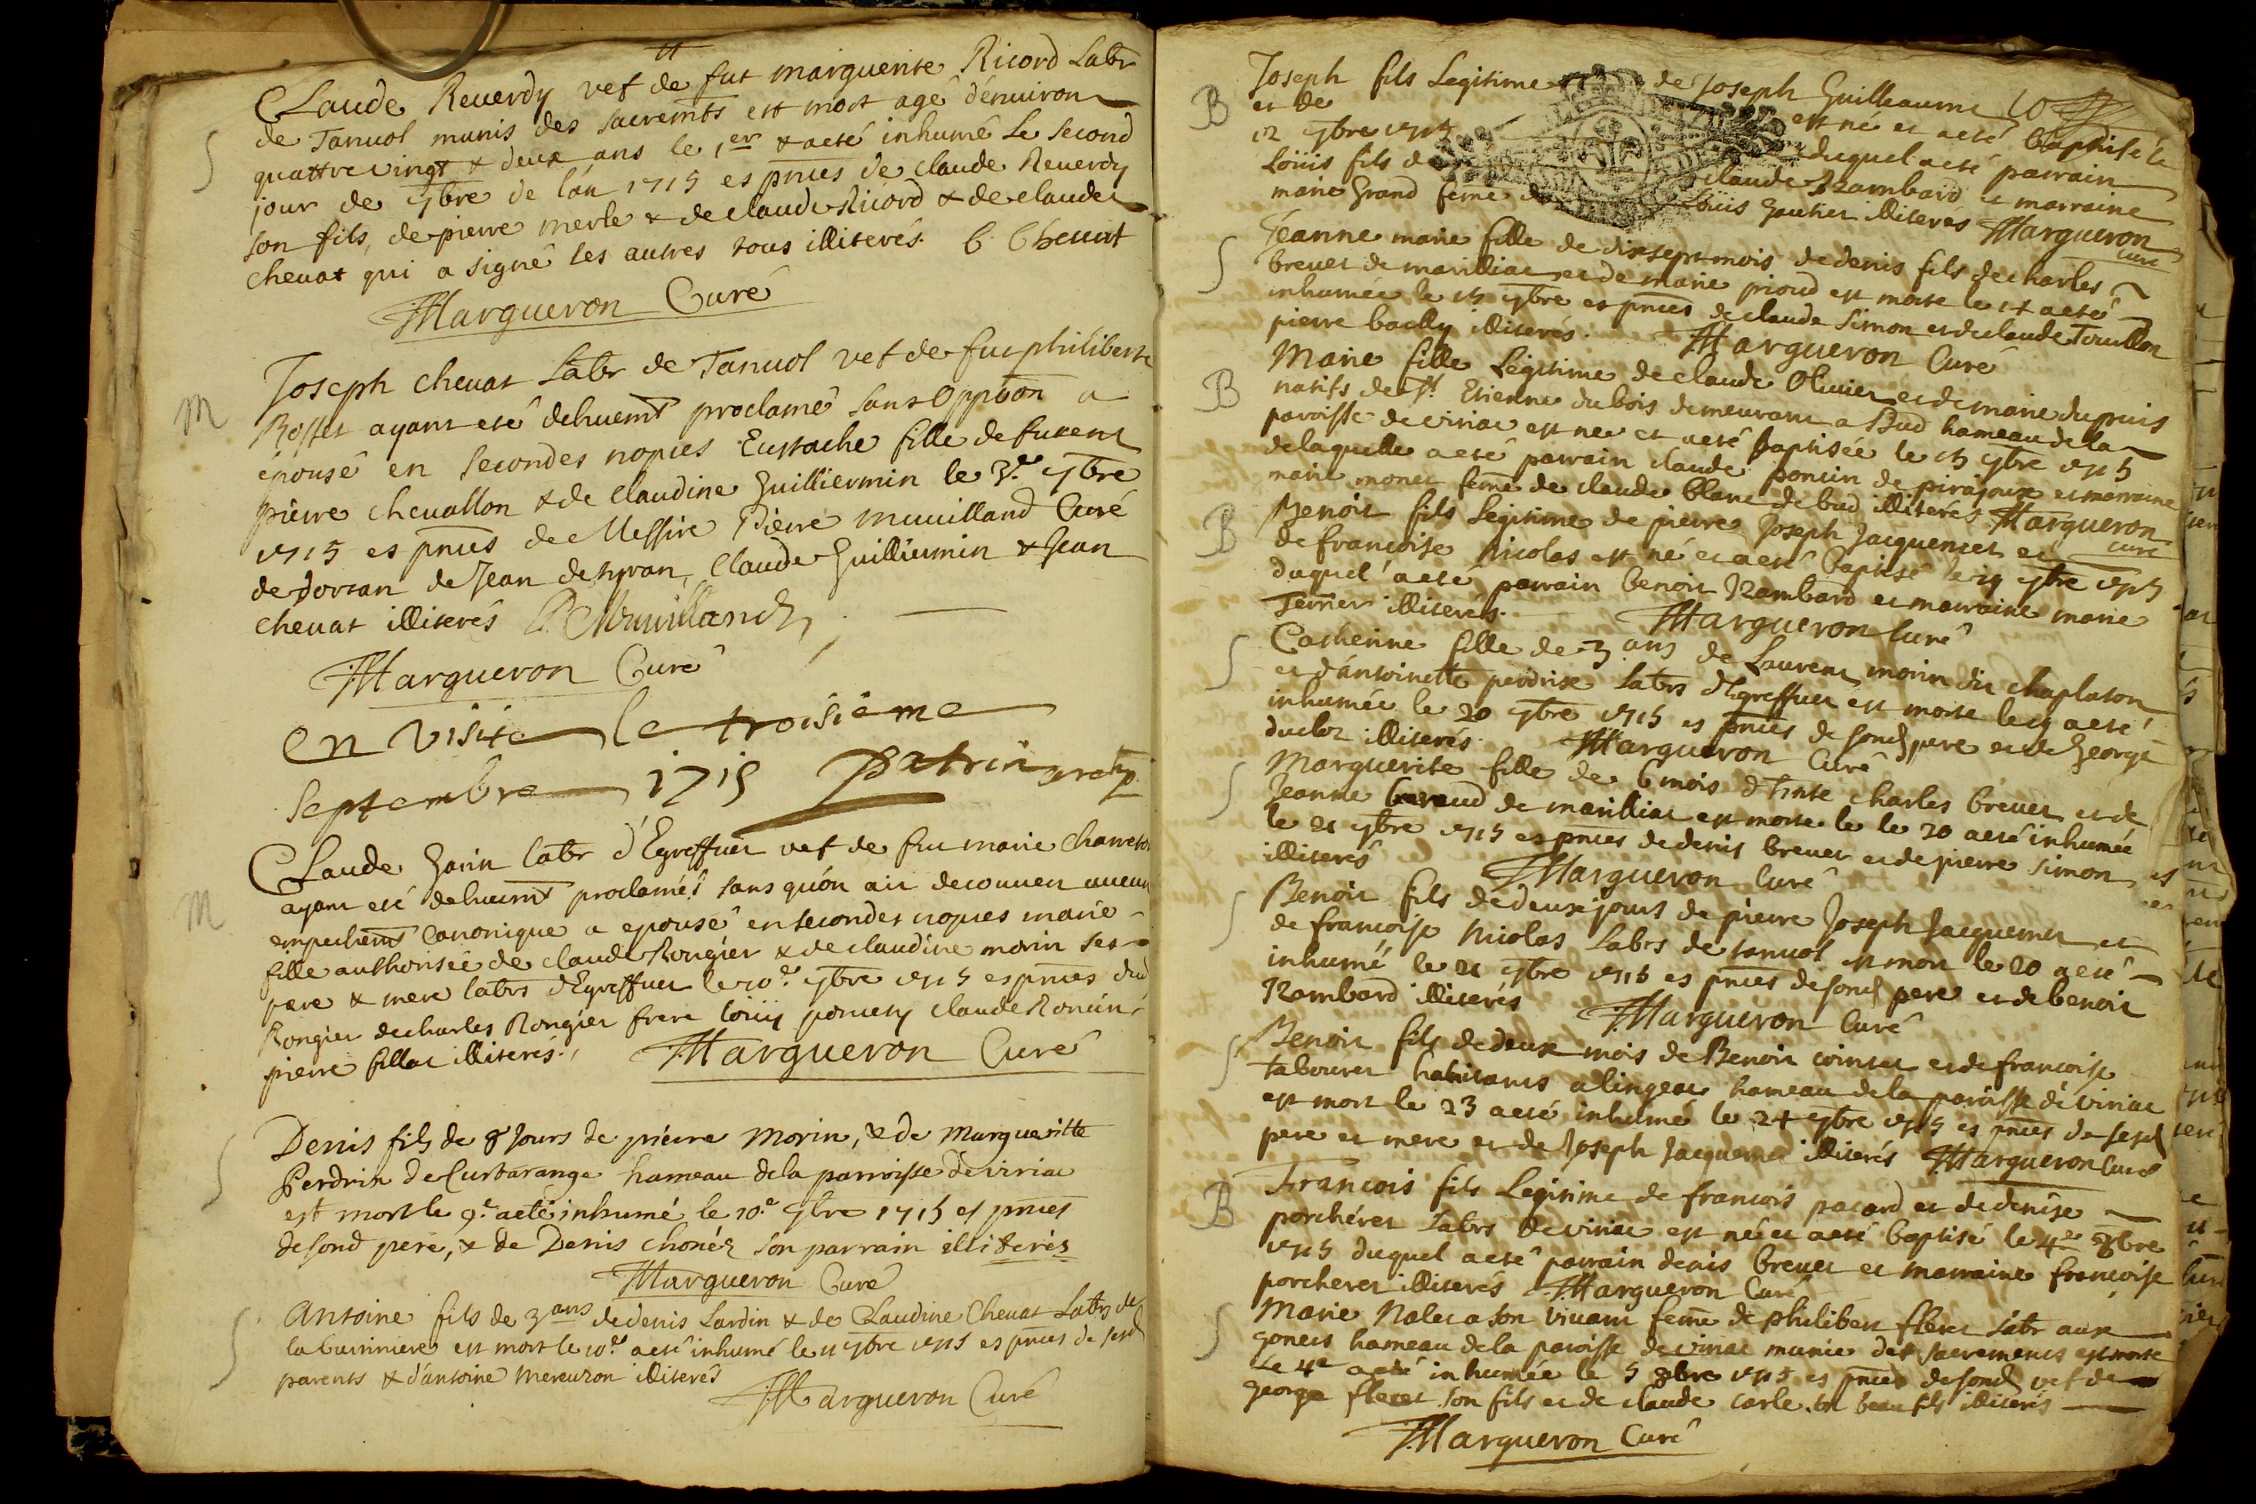 Claude Reuerdy vef de fut marguerite Ricord Labr
de Tanuol munis des sacremts est mort agé denuiron
quattre vingt & deux ans le 1er & aeté inhumé Le second
jour de 7bre de l'an 1715 es pnces de claude Reuerdy
son fils, de pierre merle & de claude Ricord & de claude
chevat qui a signé les autres tous illiterés. C Chevat
Margueron Curé
M
Joseph chevat Labr de Tanuol vef de fue philiberte
Rosset ayant eté dehuemt proclamé sans Oppoon a
epousé en secondes nopces Eustache fille de furent
pierre chevallon & de claudine Guilliermin le 3e 7bre
1715 es pnces de Messire Pierre muuilland Curé
de dortan de Jean de tyran, Claude Guilliermin & Jean
chevat illiterés P. Muuilland
Margueron Curé
en visite le troisieme
septembre 1715 Patrin
M
Claude Garin labr d'Egreffuel vef de fue marie
ayant eté dehuemt proclamés sans quón ait decouuert aucun
empechemt Canonique a epousé en secondes nopces marie
fille authorisée de claude Rongier & de claudine morin ses
pere & mere labrs d'Egreffuel le 10e 7bre 1715 es pnces dud
Rongier de charles Rongier frere claude
pierre fillat illiterés. Margueron Curé
Denis fils de 8 Jours de pierre Morin, & de Margueritte
Perdrix de Curtarange hameau dela parroisse de viriac
est mort le 9e aeté inhumé le 10e 7bre 1715 es pnces
de sond pere, & de Denis chonéz son parrain illiteréz
Margueron Curé
Antoine fils de 3 ans de denis Lardin & de Claudine Chevat Labrs de
la est mort le 10e aeté inhumé le 11 7bre 1715 es pnces de sesd
parents & d'antoine mercuron illiterés
Margueron Curé
B
Joseph fils Legitime de Joseph Guilleaume
et de est né et aeté baptisé le
12 7bre 1715 duquel aeté parrain
Loüis fils de claude Rambard et marraine
marie Grand feme de Loüis Gautier illiterés Margueron
curé
Jéanne marie fille de dixsept mois de denis fils de charles
breuet de marilliat et de marie prioud est morte le 14 aeté
inhumée le 15 7bre es pnces de claude Simon et de claude Touillon
pierre bailly illiterés. Margueron Curé
B
Marie fille Légitime de claude Oliuier et de marie dupuis
natifs de St Etienne du bois demeurant a Bud hameau de la
paroisse de viriac est née et aeté baptisée le 15 7bre 1715
delaquelle aeté parrain claude poncin de pirajoux et marraine
marie monet feme de claude blanc de bud illiterés Margueron
curé
B
Benoit fils Legitime de pierre Joseph Jacquemet et
de francoise Nicolas est né et aeté baptisé le 19 7bre 1715
duquel aeté parrain benoit Rambard et marraine marie
Ternier illiterés. Margueron Curé
Catherine fille de 3 ans de Laurent morin dit chaplaton
et d'antoinette perdrix Labrs d'Egreffuel est morte le 19 aeté
inhumée le 20 7bre 1715 es pnces de sond pere et de George
duclos illiterés. Margueron Curé
Marguerite fille de 6 mois d'hnte charles breuet et de
Jeanne de marilliat est morte le le 20 aeté inhumée
le 21 7bre 1715 es pnces de denis breuet et de pierre Simon
illiterés Margueron Curé
Benoit fils de deux jours de pierre Joseph Jacquemet et
de francoise Nicolas Labrs de tanuol est mort le 20 aeté
inhumé le 21 7bre 1715 es pnces de sond pere et de benoit
Rambard illiterés Margueron Curé
Benoit fils de deux mois de Benoit cointet et de francoise
tabouret habitants alingeat hameau dela paroisse de viriac
est mort le 23 aeté inhumé le 24 7bre 1715 es pnces de sesd
pere et mere et de Joseph Jacquemet illiterés Margueron Curé
B
Francois fils Legitime de francois pacard et de denise
porchéret Labrs de viriac est né et aeté baptisé le 4e 8bre
1715 duquel aeté parrain denis breuet et marraine francoise
porcheret illiterés Margueron Curé
Marie Nalet a son vivant feme de philibert fleret Labr aux
gonets hameau dela paroisse de viriac munie des sacrements est morte
Le 4e aeté inhumée le 5 8bre 1715 es pnces de sond vef de
George fleret son fils et de claude carle son beau fils illiterés
Margueron Curé